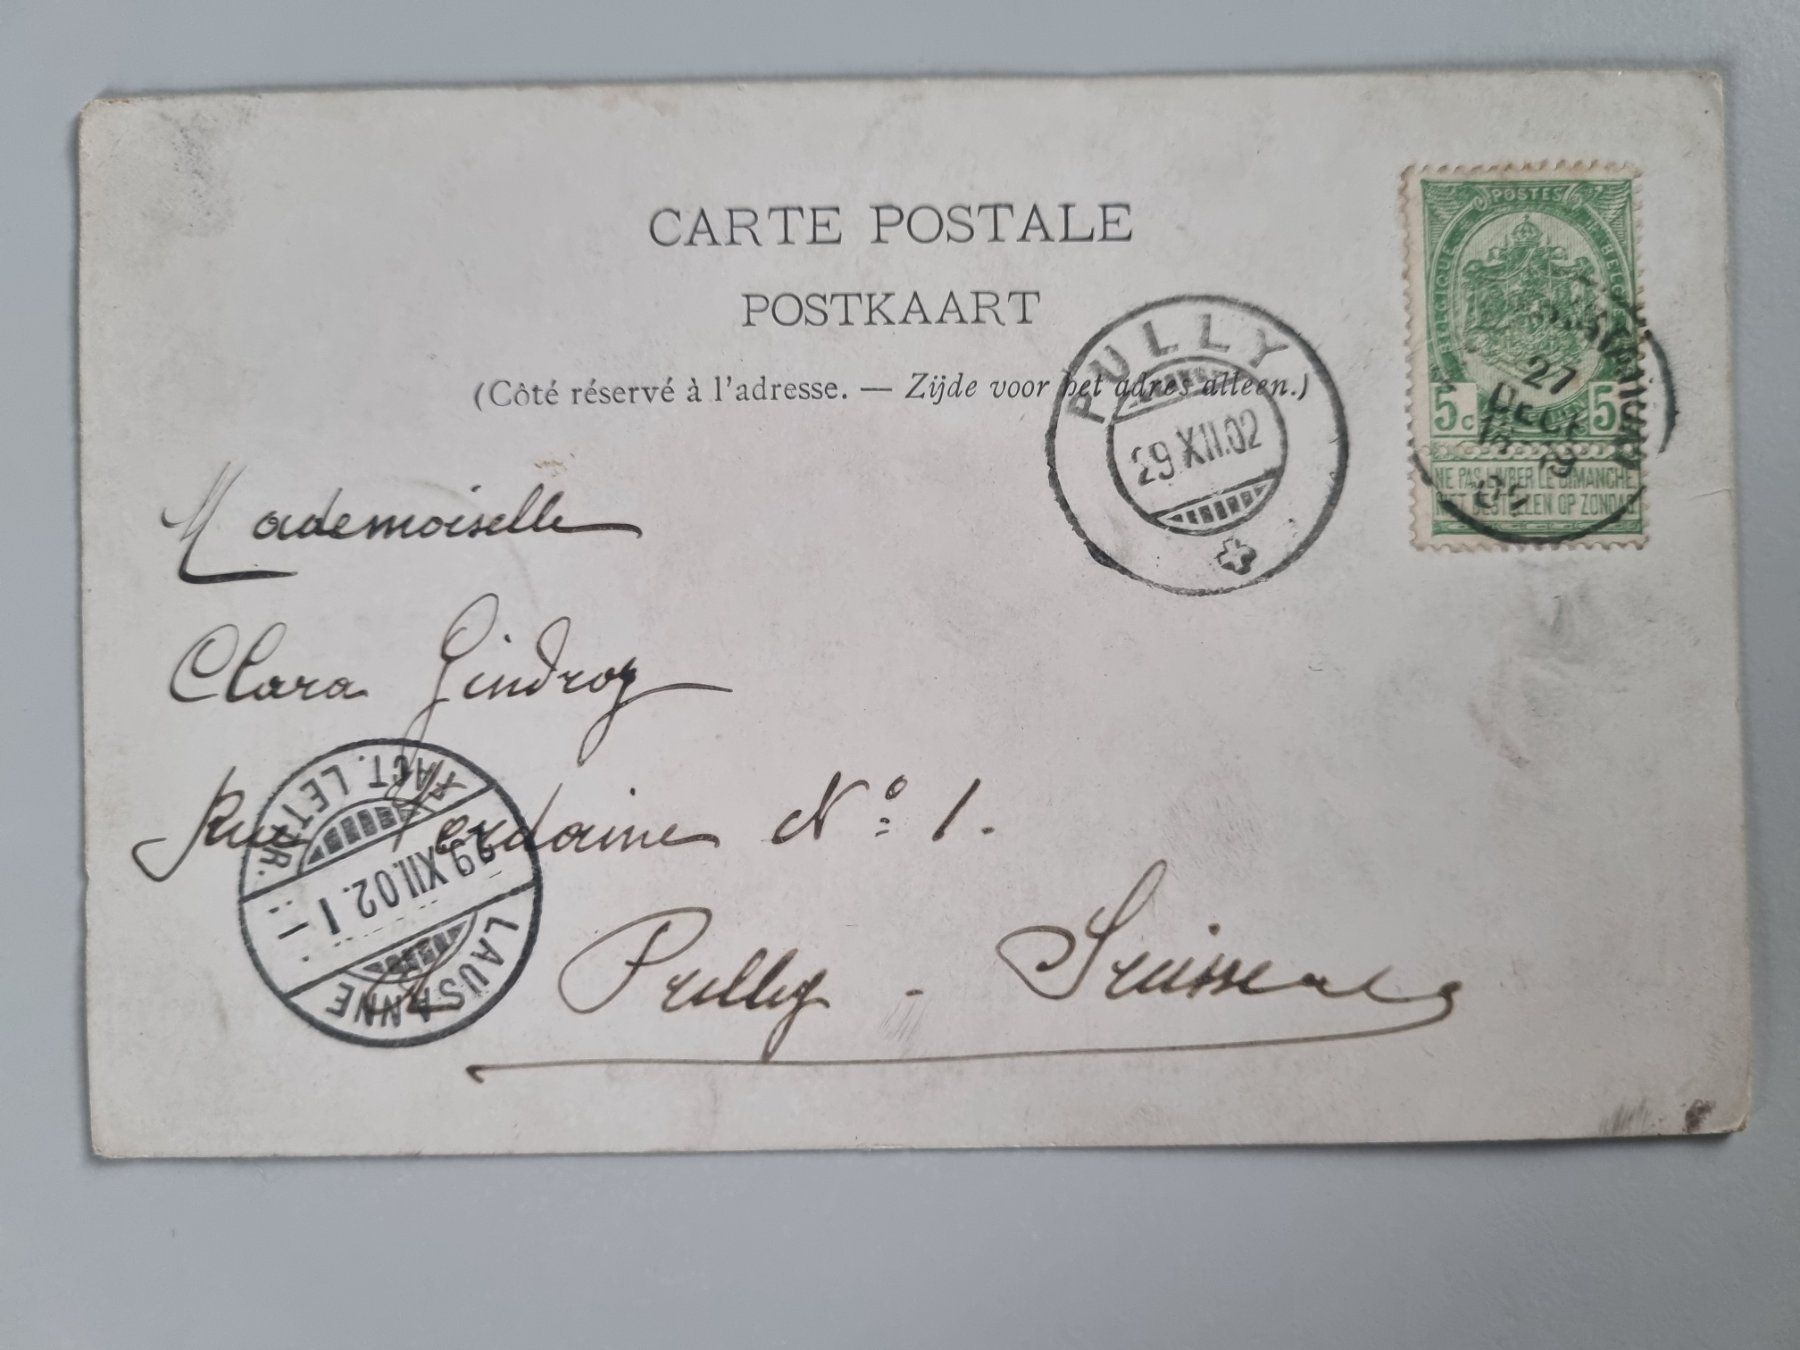 CARTE POSTALE
POSTKAART
(Côté réservé à l'adresse. — Zijde voor het adres alleen.)
POSTES
BELGIQUE
BELGIË
5c 5c
NE PAS LIVRER LE DIMANCHE
NIET BESTELLEN OP ZONDAG
27
DECE
PULLY
29.XII.02
Mademoiselle
Clara Gindroz
Rue No 1.
Pully - Suisse
LAUSANNE
29.XII.02.1
LETTR.